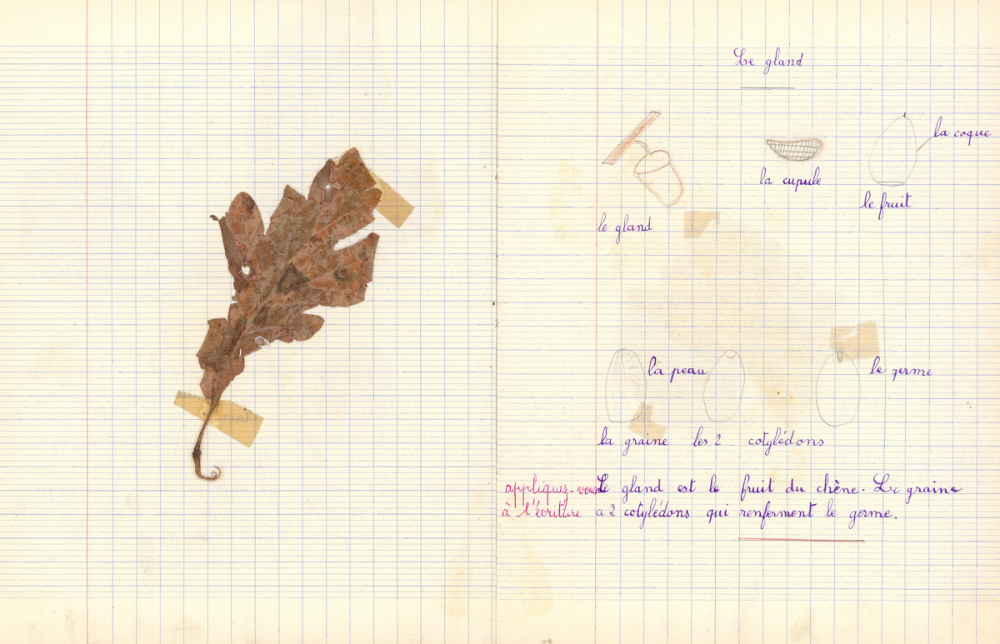 Le gland
la coque
la cupule
le fruit
le gland
la peau
le germe
la graine les 2 cotylédons
appliquez-vous Le gland est le fruit du chêne. La graine
à l'écriture a 2 cotylédons qui renferment le germe.